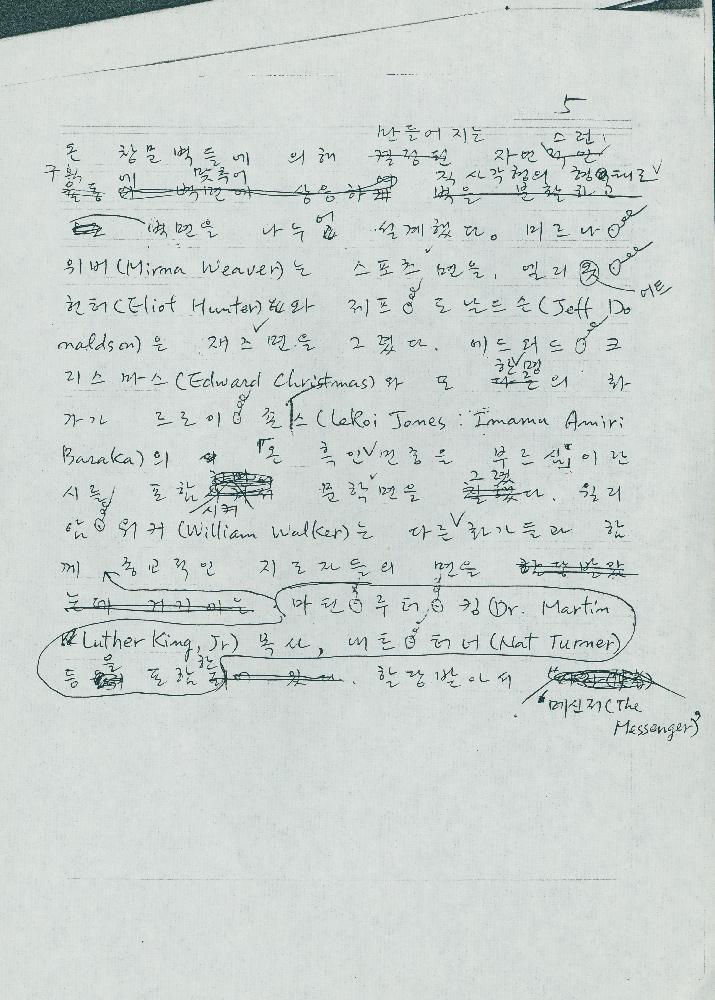 5
만들어지는 스런
온 창문벽들에 의해 결정된 자연
구획에 맞추어 직사각형의 형태로
벽면을 나누어 설계했다. 미르나
위버(Mirna Weaver)는 스포츠 면을, 엘리 어트
헌터(Eliot Hunter)와 제프 도날드슨(Jeff Do
naldson)은 재즈 면을 그렸다. 에드워드 크
리스마스(Edward Christmas)와 또 한 명의 화
가가 르로이 존스(LeRoi Jones: Imamu Amiri
Baraka)의 "온 흑인 민중을 부르심"이란
시를 포함시켜 문학 면을 그렸다. 윌리
암 워커(William Walker)는 다른 화가들과 함
께 종교적인 지도자들의 면을 할당받았
는데 거기에는 마틴 루터 킹(Dr. Martin
Luther King, Jr) 목사, 내트 터너(Nat Turner)
등을 포함한 할당받아서
"메신저(The
Messenger)"